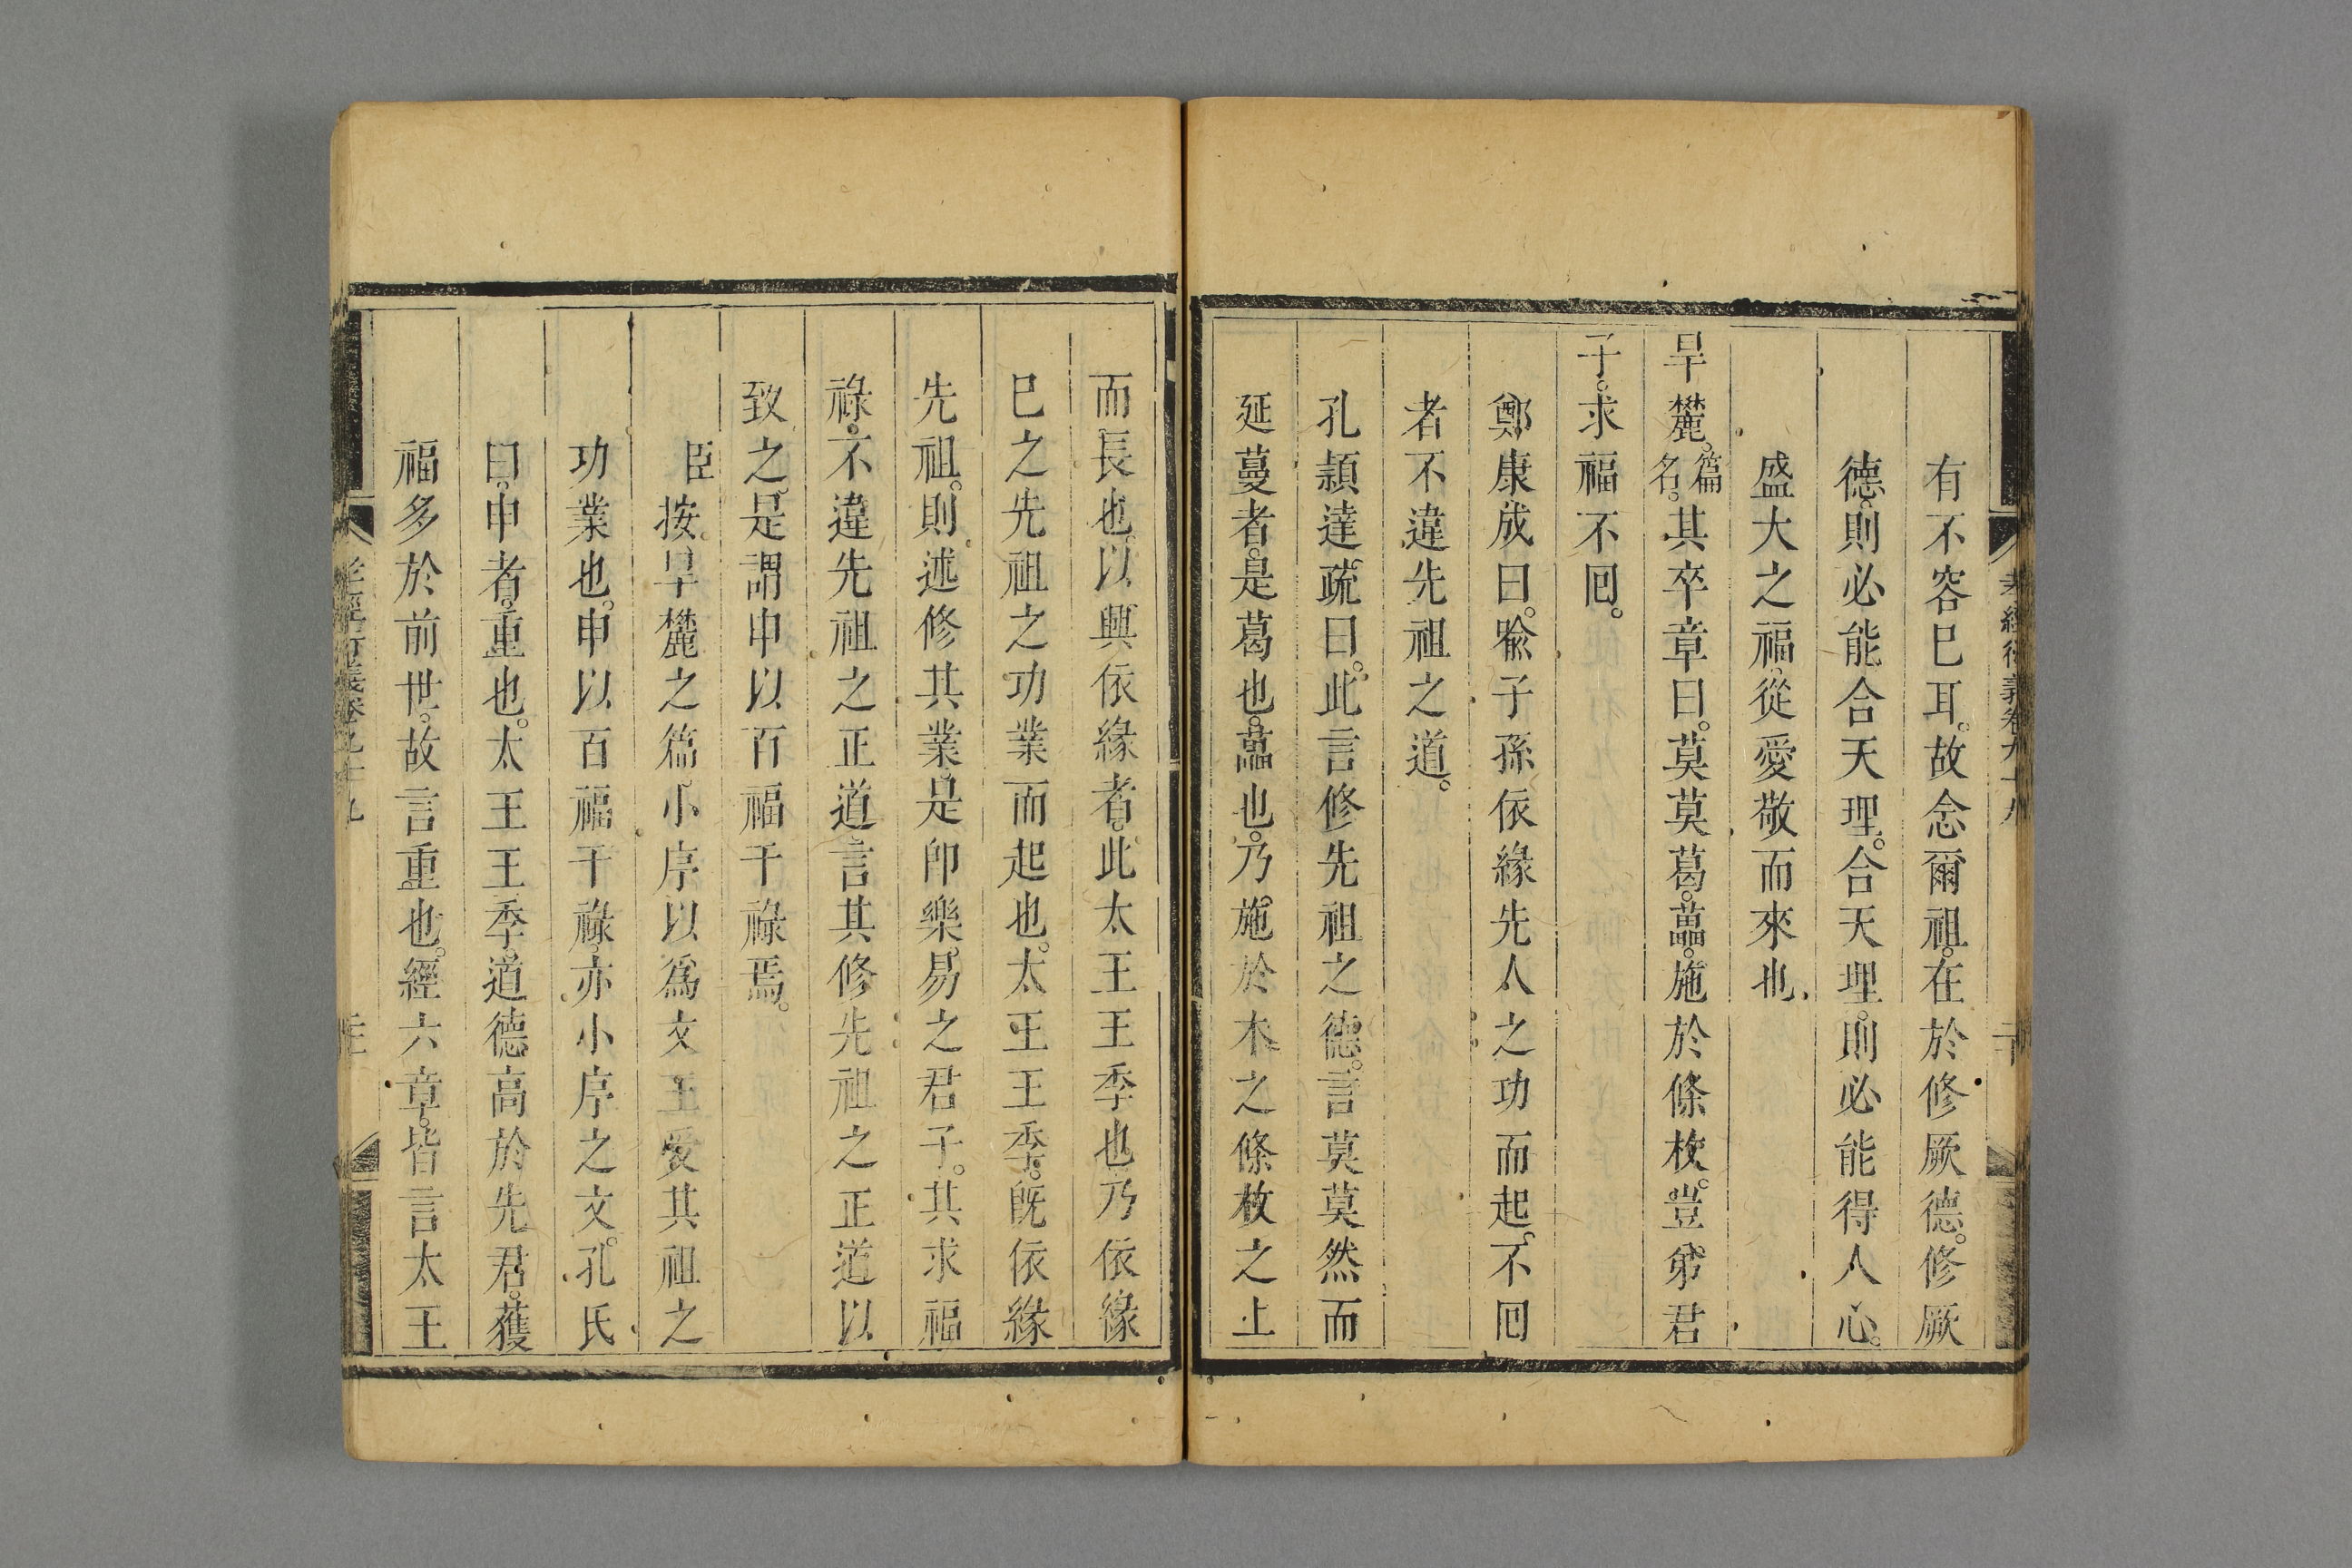 孝經衍義卷九十八
有不容巳耳。故念爾祖。在於修厥德。修厥
德。則必能合天理。合天理。則必能得人心。
盛大之福。從愛敬而來也。
旱麓。篇名。其卒章曰。莫莫葛。藟。施於條枚。豈弟君
子。求福不囘。
鄭康成曰。喩子孫依緣先人之功而起。不囘
者不違先祖之道。
孔穎達疏曰。此言修先祖之德。言莫莫然而
延蔓者。是葛也。藟也。乃施於木之條枚之上
而長也。以興依緣者。此太王王季也乃依緣
巳之先祖之功業而起也。太王王季。旣依緣
先祖。則述修其業。是卽樂。易之君子。其求福
祿。不違先祖之正道。言其修先祖之正道以
致之。是謂申以百福干祿焉。
臣按旱麓之篇。小序以為文王受其祖之
功業也。申以百福干祿。亦小序之文。孔氏
曰。申者。重也。太王王季。道德高於先君。獲
福多於前世。故言重也。經六章。皆言太王